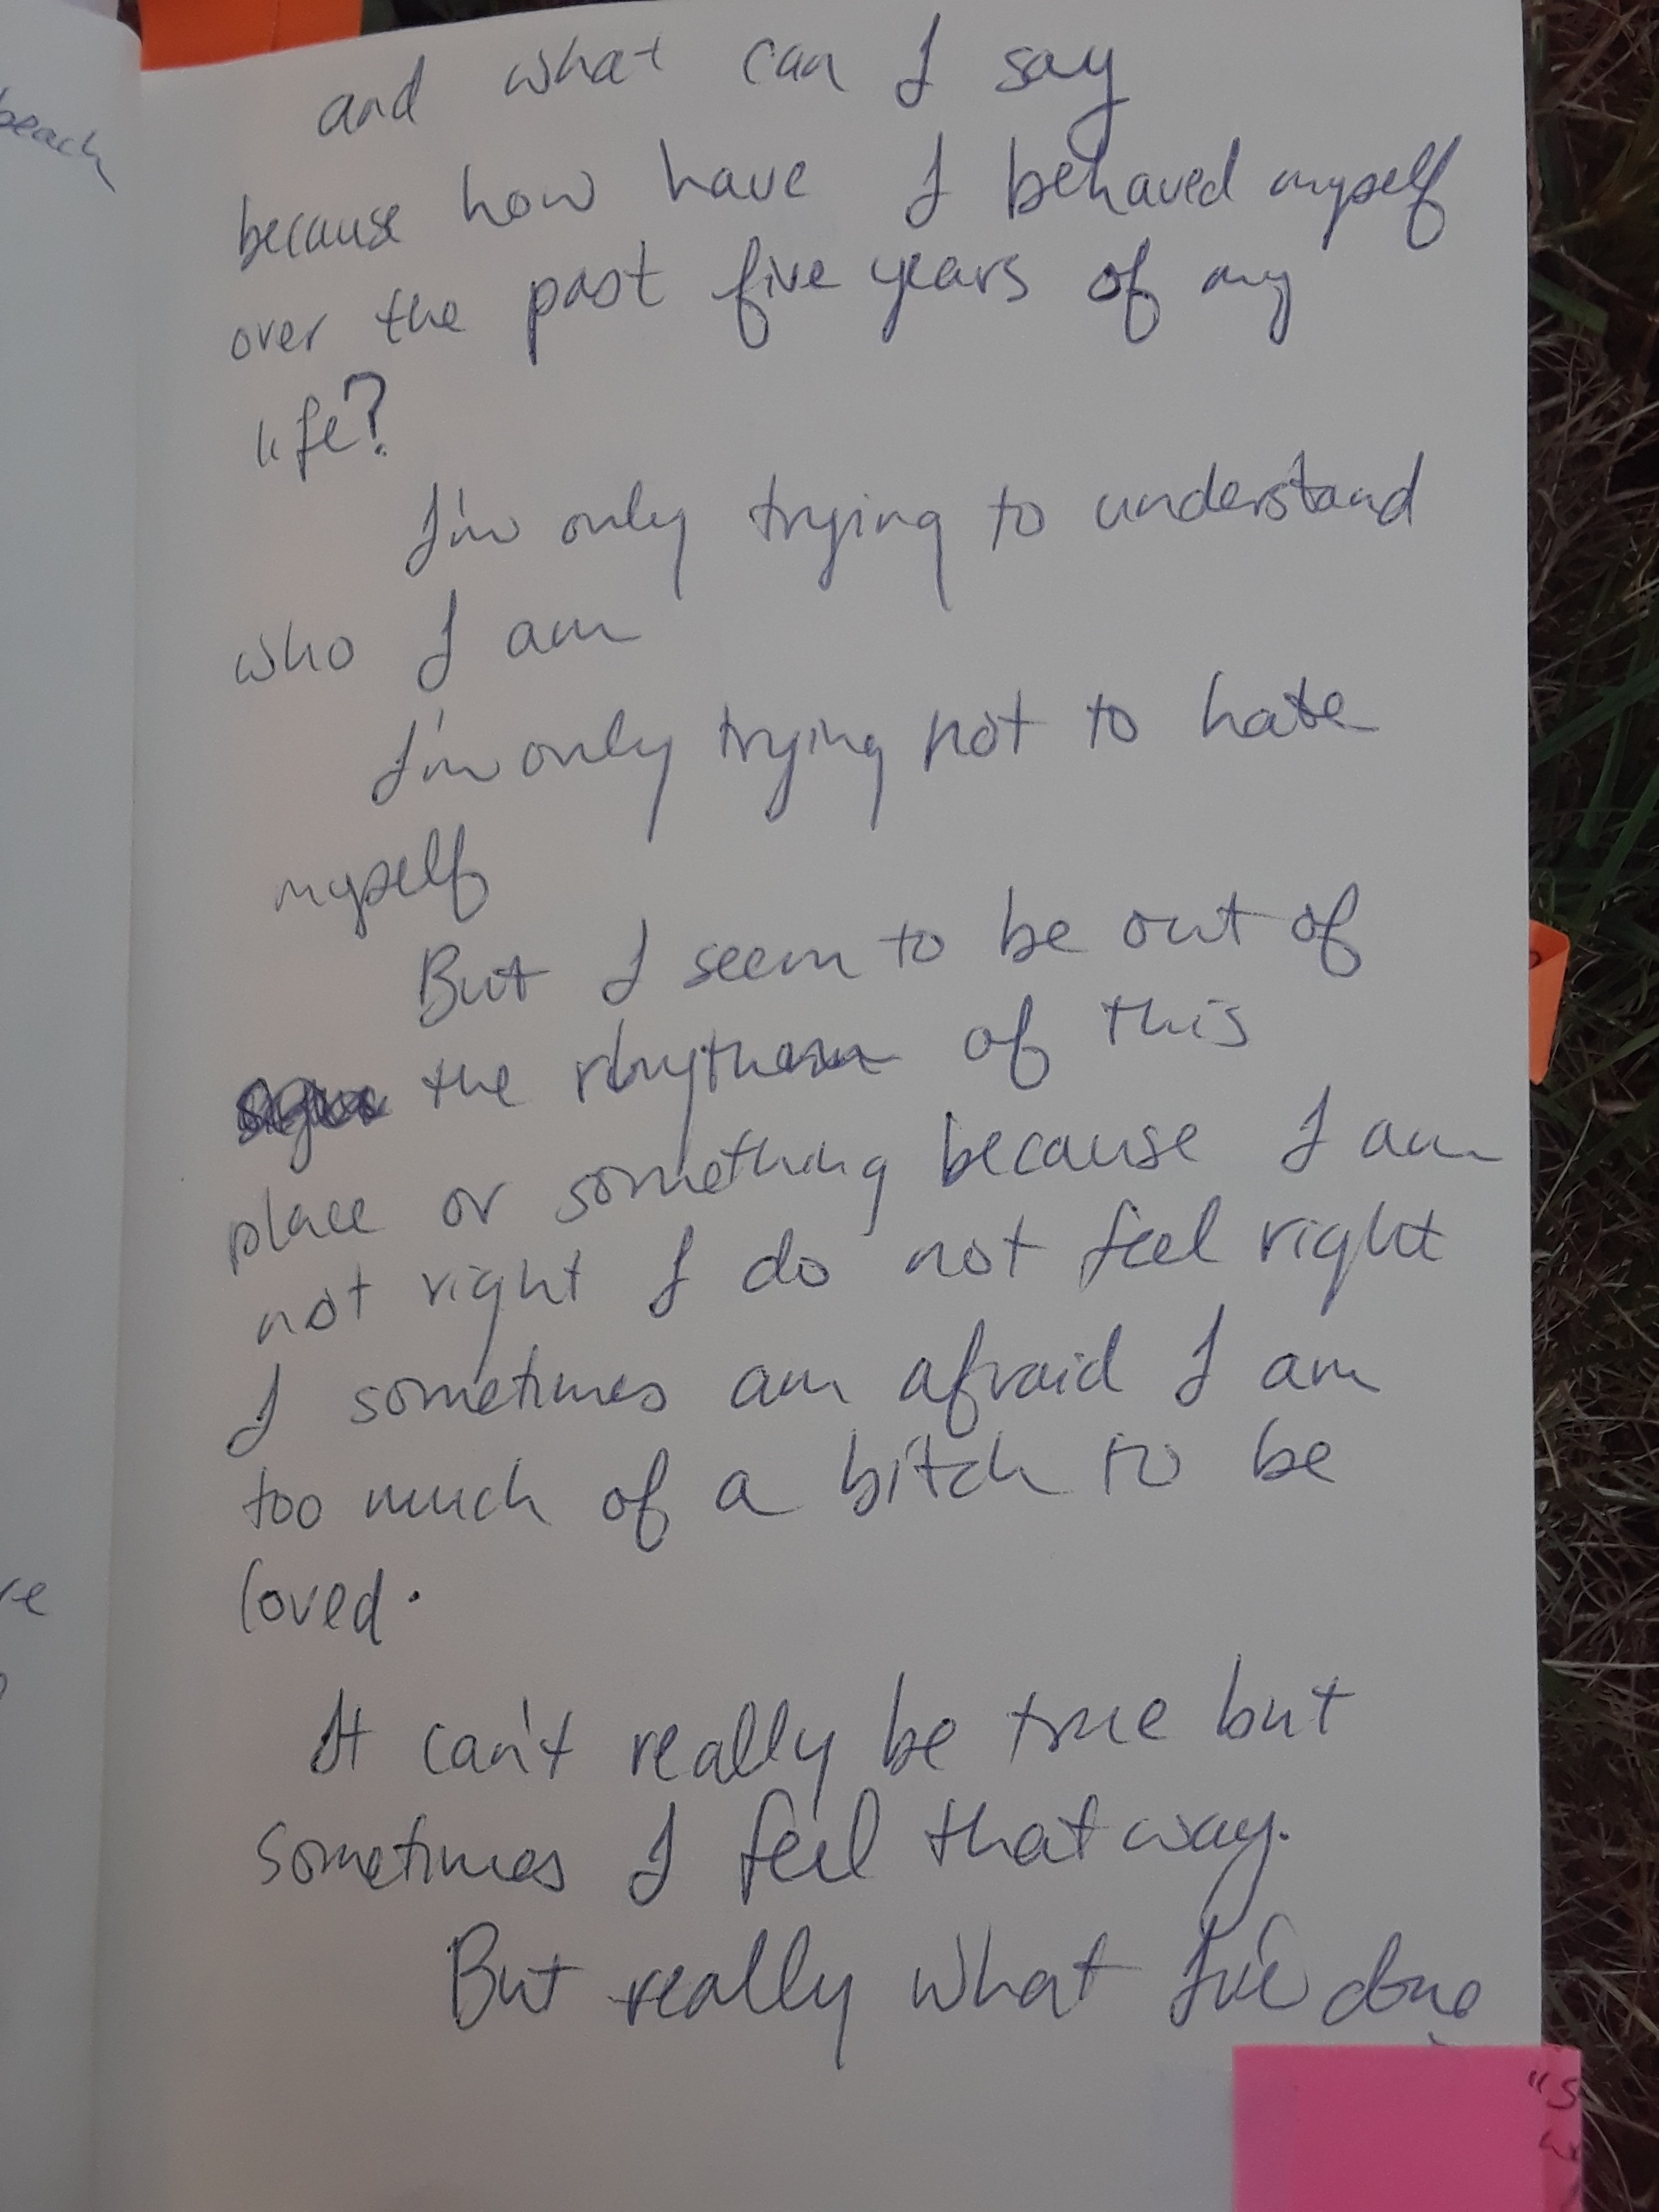 beach
re
and what can I say
because how have I behaved myself
over the past five years of my
life?
I'm only trying to understand
who I am
I'm only trying not to hate
myself
But I seem to be out of
the rhythem of this
place or something because I am
not right I do not feel right
I sometimes am afraid I am
too much of a bitch to be
loved.
It can't really be true but
sometimes I feel that way.
But really what I've done
"S